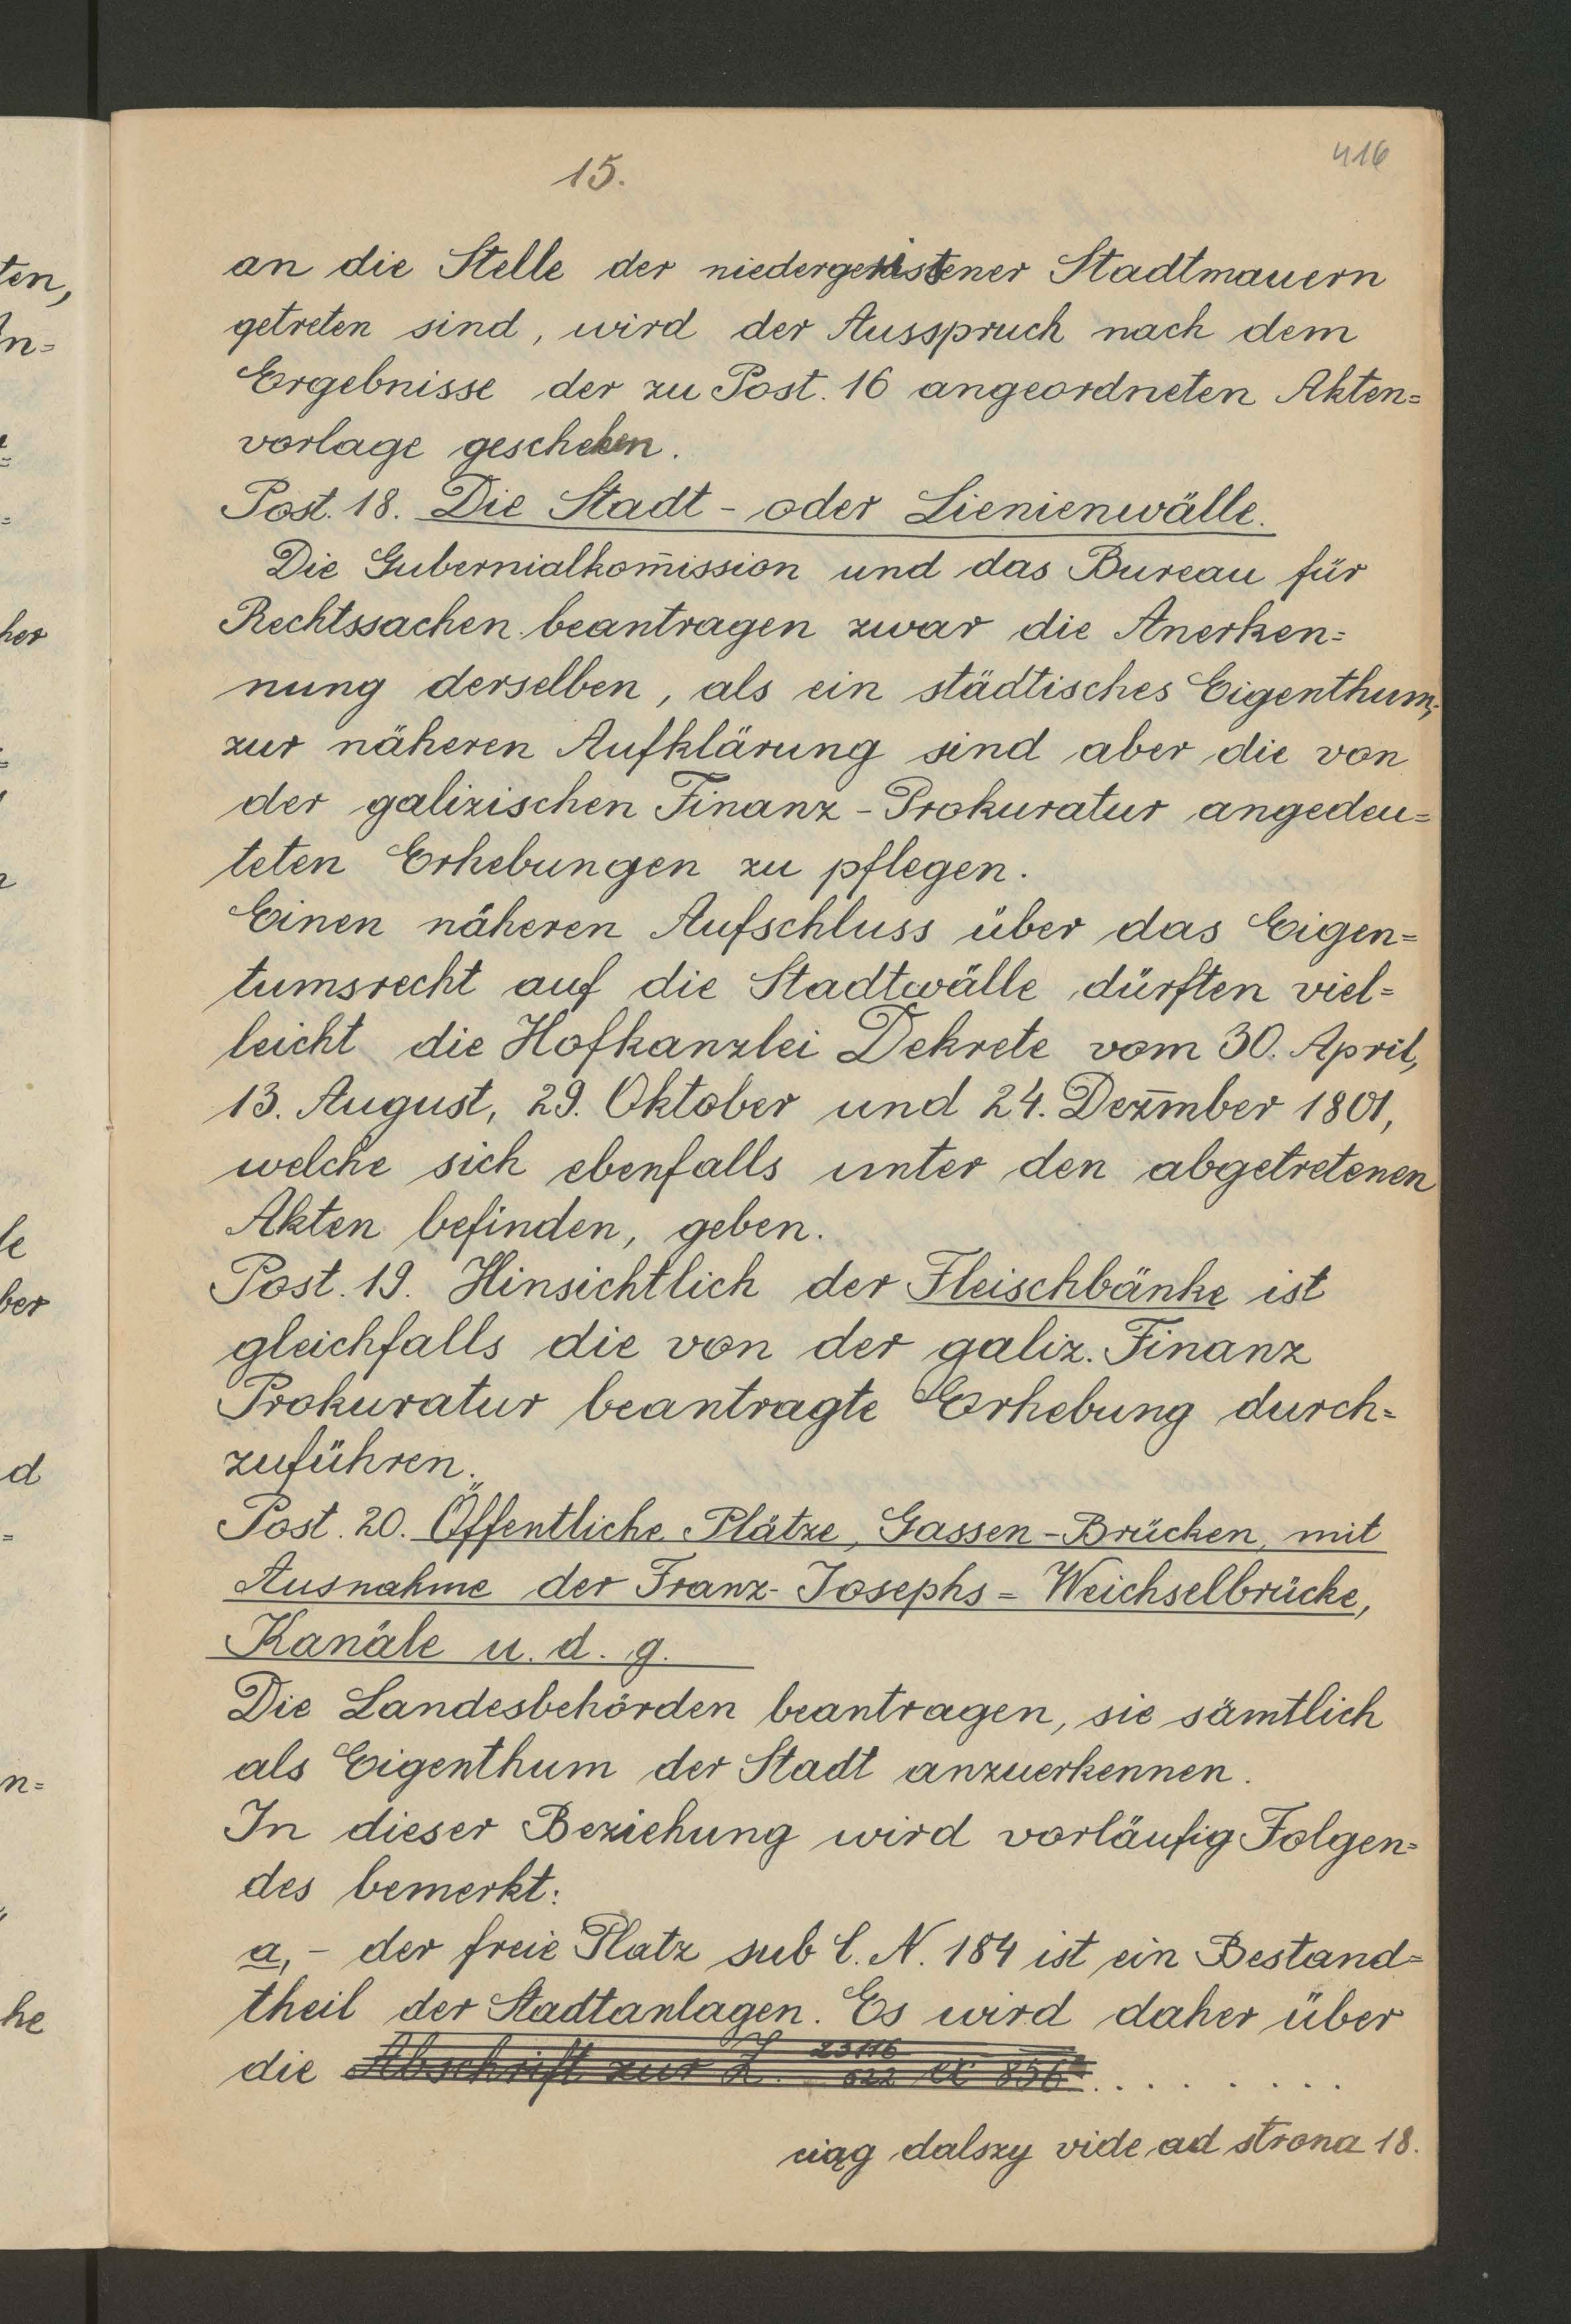 416
15.
an die Stelle der niedergeristener Stadtmauern
getreten sind, wird der Ausspruch nach dem
Ergebnisse der zu Post. 16 angeordneten Akten=
vorlage geschehen.
Post. 18. Die Stadt - oder Lienienwälle.
Die Gubernialkom̄ission und das Bureau für
Rechtssachen beantragen zwar die Anerken=
nung derselben, als ein städtisches Eigenthum,
zur näheren Aufklärung sind aber die von
der galizischen Finanz - Prokuratur angedeu=
teten Erhebungen zu pflegen.
Einen näheren Aufschluss über das Eigen=
tumsrecht auf die Stadtwälle dürften viel=
leicht die Hofkanzlei Dekrete vom 30. April,
13. August, 29. Oktober und 24. Dezm̄ber 1801,
welche sich ebenfalls unter den abgetretenen
Akten befinden, geben.
Post. 19. Hinsichtlich der Fleischbänke ist
gleichfalls die von der galiz. Finanz
Prokuratur beantragte Erhebung durch=
zuführen.
Post. 20. Öffentliche Plätze, Gassen - Brücken, mit
Ausnahme der Franz- Josephs = Weichselbrücke,
Kanäle u. d. g.
Die Landesbehörden beantragen, sie sämtlich
als Eigenthum der Stadt anzuerkennen.
In dieser Beziehung wird vorläufig Folgen=
des bemerkt:
a, - der freie Platz sub C. N. 184 ist ein Bestand=
theil der Stadtanlagen. Es wird daher über
die Abschrift zur Z. 23116 / 622 ex 856 . . . . . . . .
ciąg dalszy vide ad strona 18.
ten,
n=
her
n
le
ber
d
=
n=
he